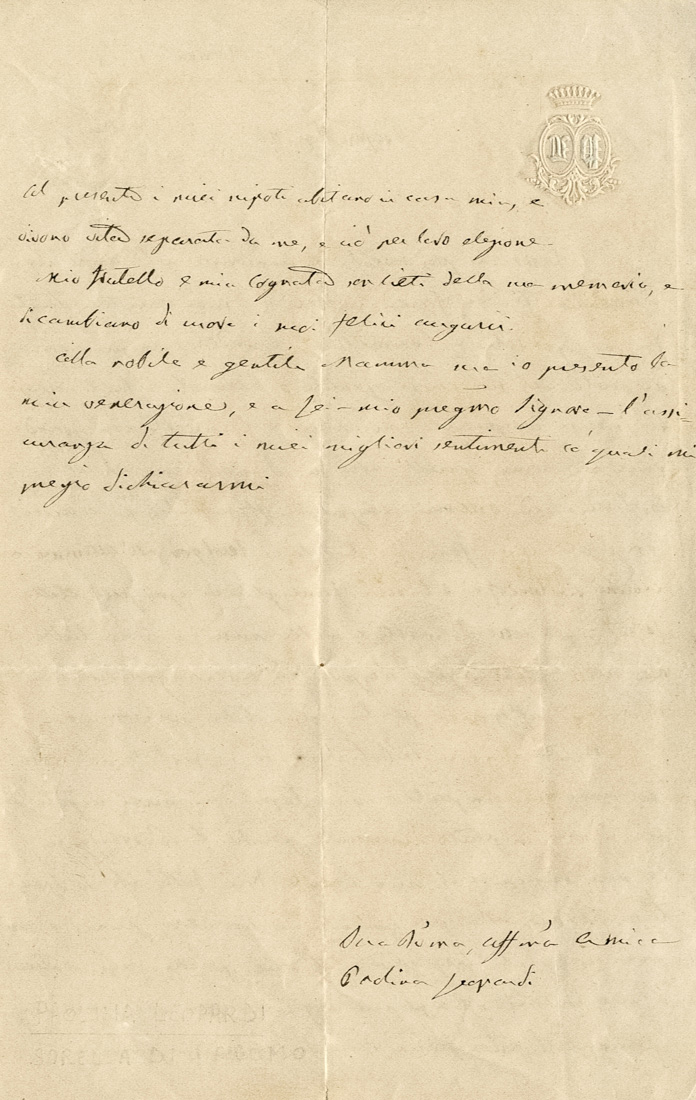 Al presente i miei nipoti abitano in casa mia, e
vivono vita separata da me, e ciò per loro elezione.
Mio fratello e mia Cognata son lieti della sua memoria, e
ricambiano di cuore i suoi felici augurii.
Alla nobile e gentile Mamma sua io presento la
mia venerazione, e a Lei – mio pregmo Signore – l'assi-
curanza di tutti i miei migliori sentimenti co' quali mi
pregio dichiararmi
Sua Dma, affma Amica
Paolina Leopardi